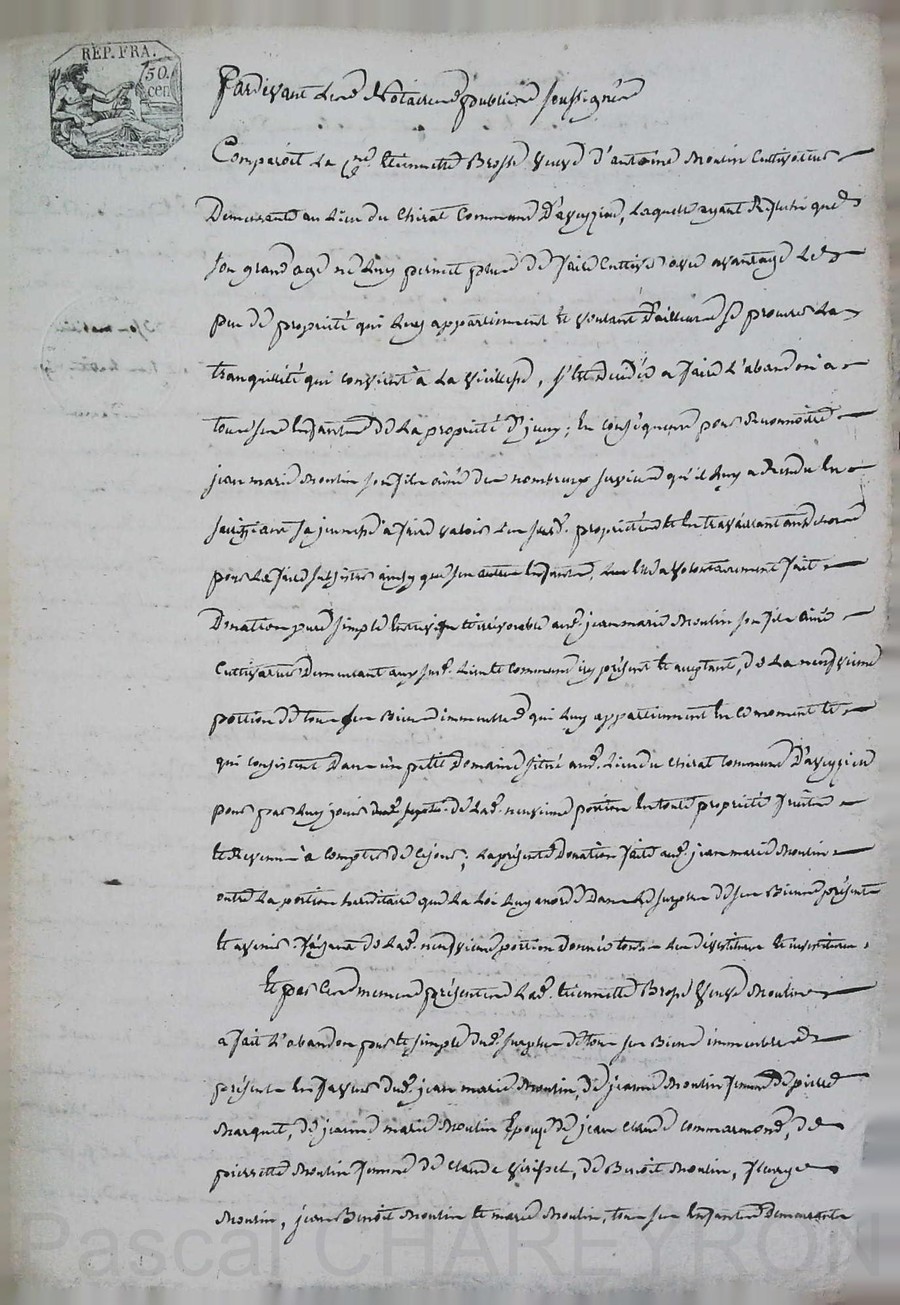 REP. FRA.
50.
cen
Pardevant Les Notaires publics soussignés
Comparoit La Cne Etiennette Brosse veuve d'antoine Moulin Cultivateur
Demeurante au Lieu du Chirat Commune D'aveyzieu, Laquelle ayant que
son grand age ne Luy permet plus de faire Cultiver avec avantage Le
peu de propriété qui Luy appartiennent et voulant D'ailleurs se procurer La
tranquillité qui convient a La vieillesse, s'est Decidée a faire L'abandon a
tous ses Enfants de La propriété D'iceux; En conséquence pour Reconnoitre
jean marie Moulin son fils ainé des nombreux services qu'il Luy a Rendu En
sa jeunesse a faire valoir Les susd. propriétés et En travaillant
pour La faire subsister ainsy que ses autres Enfants, Elle a volontairement fait
Donation pure simple Entrevifs et irrévocable aud. jean marie Moulin son fils ainé
Cultivateur Demeurant aux susd. Lieu et Commune icy présent et acceptant, de La neufvieme
portion de tous ses Biens immeubles qui Luy appartiennent En ce moment et
qui consistent Dans un petit Domaine situé aud. Lieu du Chirat Commune D'aveyzieu
pour par Luy jouir de Lad. neuvieme portion En toute propriété fruits
et Revenus a compter de ce jour; La présente Donation faite aud. jean marie Moulin
outre La portion héréditaire que La Loi Luy accorde Dans Le surplus de ses Biens présents
et avenir. de Lad. neufvieme portion donnée
Et par Ces mêmes présentes Lad. Etiennette Brosse veuve Moulin
a fait L'abandon pur et simple du surplus de tous ses Biens immeubles
présents En faveur dud. jean marie Moulin, de jeanne Moulin femme de pierre
Marquet, de jeanne marie Moulin Epouse de jean Claude Commarmond, de
pierrette Moulin femme de Claude Virissel, de Benoît Moulin, fleurye
Moulin, jean Benoît Moulin et marie Moulin, tous ses Enfants Demeurants
Pascal CHAREYRON